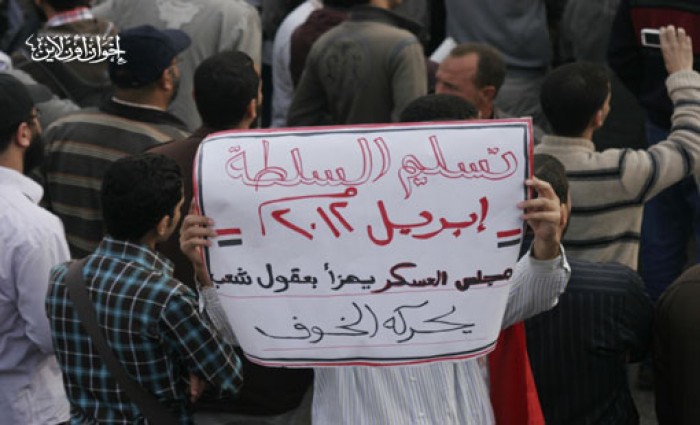 إخوان أون لاين
تسليم السلطة
إبريل ٢٠١٢
مجلس العسكر يهزأ بعقول شعب
يحركه الخوف